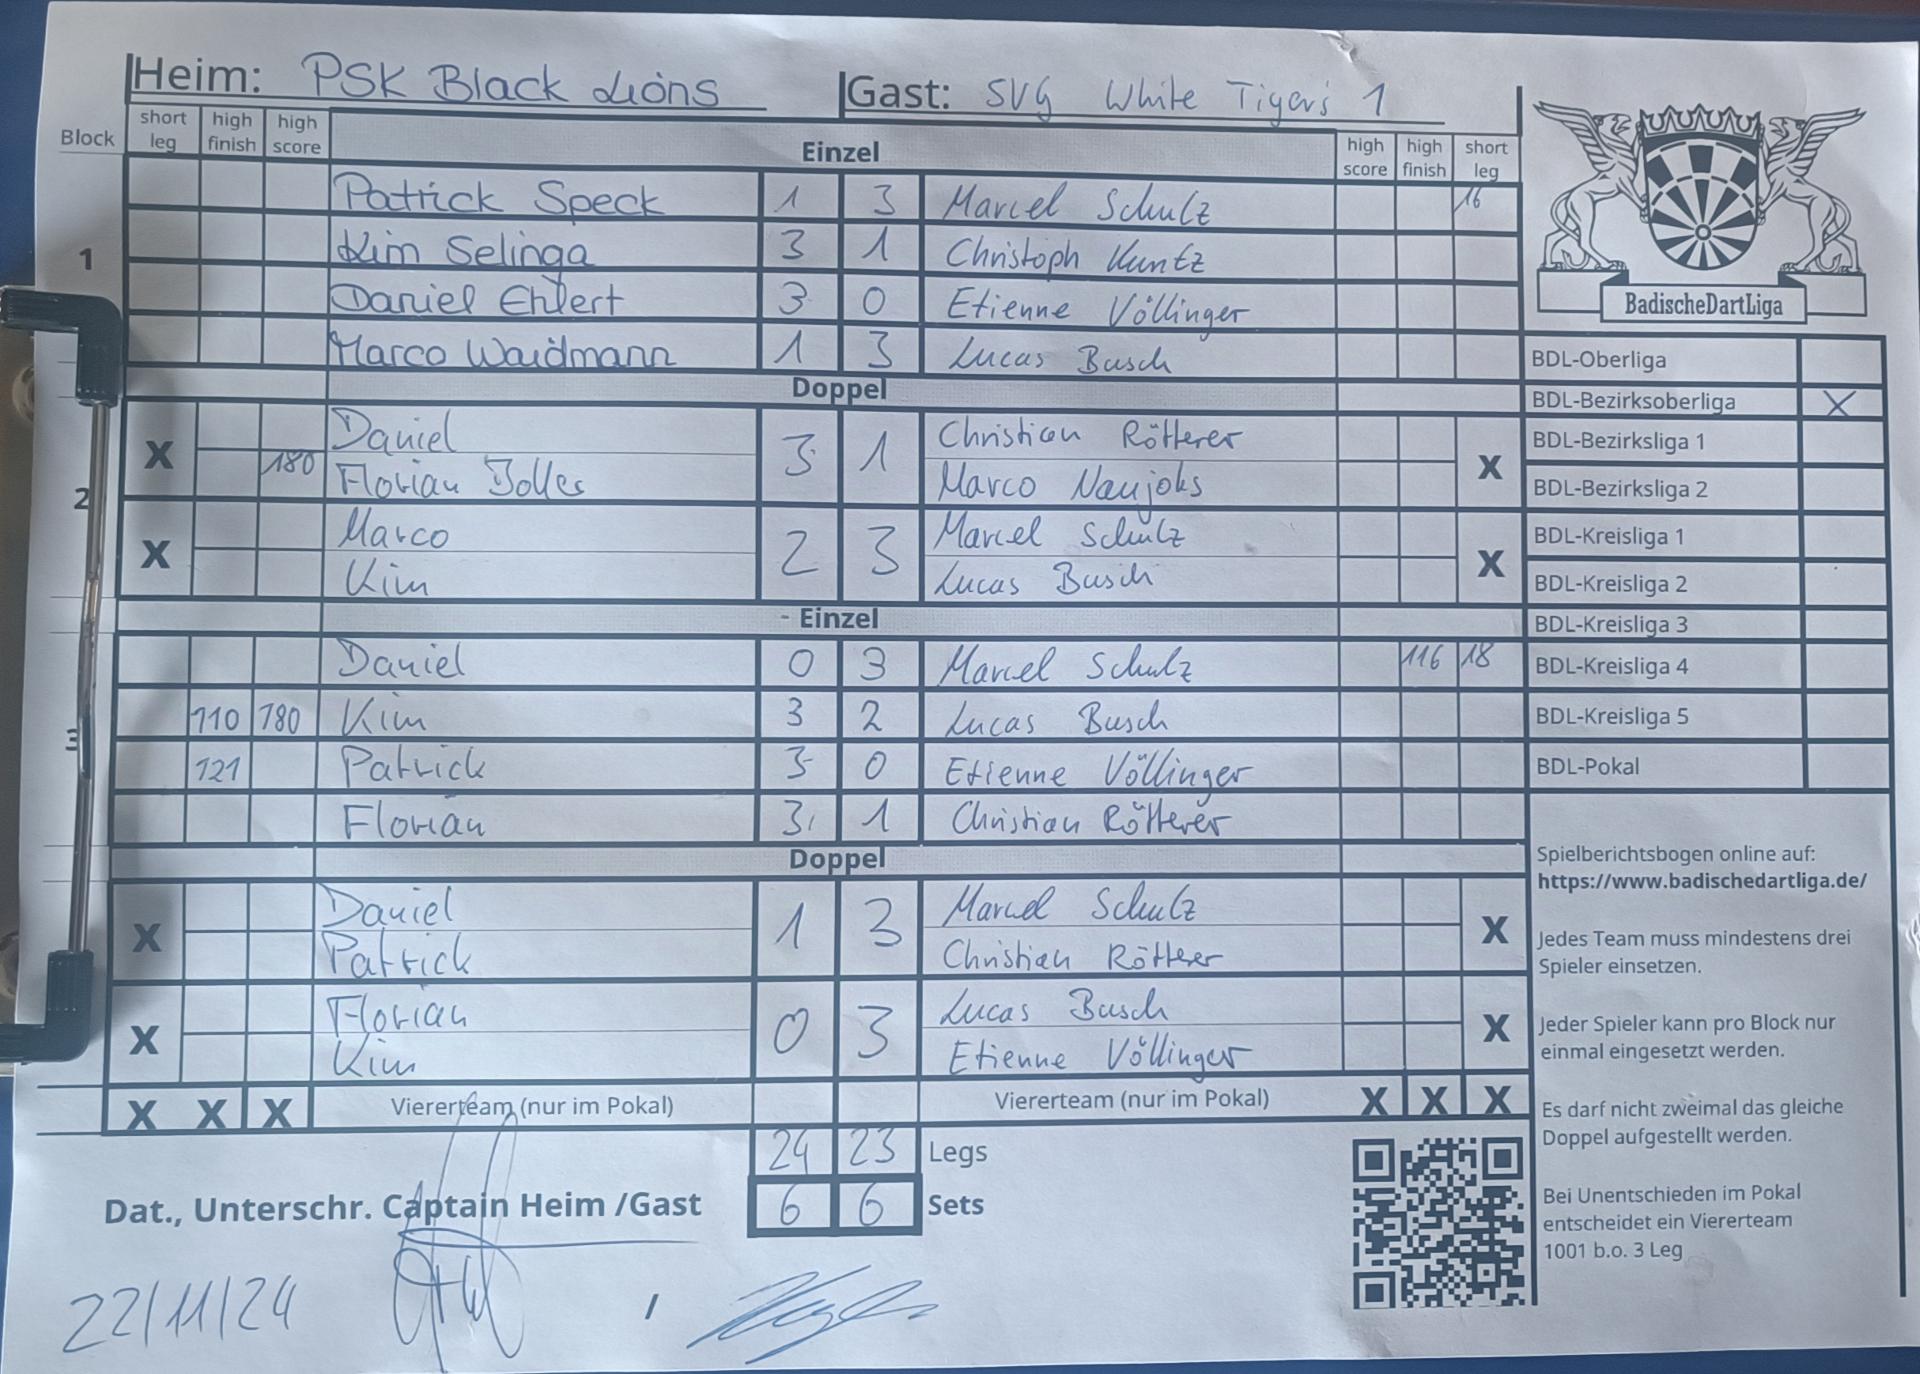 Heim: PSK Black Lions Gast: SVG White Tigers 1
Block short leg high finish high score Einzel high score high finish short leg
1
Patrick Speck 1 3 Marcel Schulz 16
Kim Selinga 3 1 Christoph Kuntz
Daniel Ehlert 3 0 Etienne Völlinger
Marco Waidmann 1 3 Lucas Busch
Doppel
2
X Daniel 3 1 Christian Rötterer X
180 Florian Marco Naujoks
X Marco 2 3 Marcel Schulz X
Kim Lucas Busch
- Einzel
3
Daniel 0 3 Marcel Schulz 116 18
110 180 Kim 3 2 Lucas Busch
121 Patrick 3 0 Etienne Völlinger
Florian 3 1 Christian Rötterer
Doppel
X Daniel 1 3 Marcel Schulz X
Patrick Christian Rötterer
X Florian 0 3 Lucas Busch X
Kim Etienne Völlinger
X X X Viererteam (nur im Pokal) Viererteam (nur im Pokal) X X X
24 23 Legs
6 6 Sets
Dat., Unterschr. Captain Heim /Gast
22/11/24 /
BadischeDartLiga
BDL-Oberliga
BDL-Bezirksoberliga X
BDL-Bezirksliga 1
BDL-Bezirksliga 2
BDL-Kreisliga 1
BDL-Kreisliga 2
BDL-Kreisliga 3
BDL-Kreisliga 4
BDL-Kreisliga 5
BDL-Pokal
Spielberichtsbogen online auf:
https://www.badischedartliga.de/
Jedes Team muss mindestens drei
Spieler einsetzen.
Jeder Spieler kann pro Block nur
einmal eingesetzt werden.
Es darf nicht zweimal das gleiche
Doppel aufgestellt werden.
Bei Unentschieden im Pokal
entscheidet ein Viererteam
1001 b.o. 3 Leg